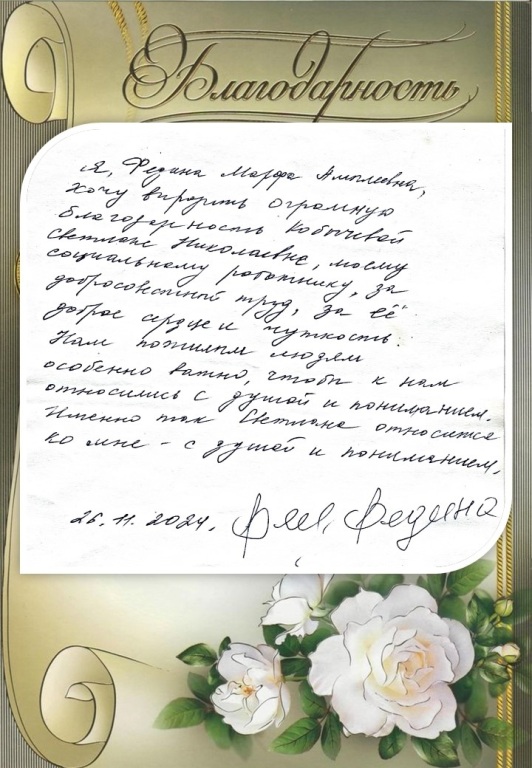 Благодарность
Я, Федина Марфа
хочу выразить огромную
благодарность
Светлане Николаевне, моему
социальному работнику, за
добросовестный труд, за её
доброе сердце и чуткость.
Нам пожилым людям
особенно важно, чтобы к нам
относились с душой и пониманием.
Именно так Светлана относится
ко мне - с душой и пониманием,
26.11.2024. Федина